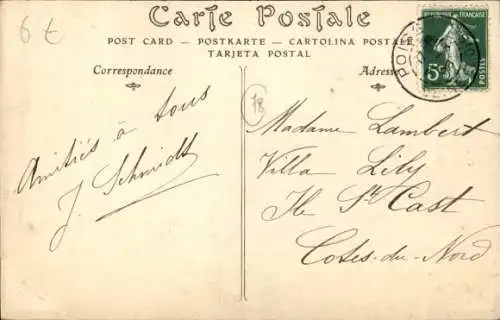 6€
Carte Postale
POST CARD — POSTKARTE — CARTOLINA POSTALE
TARJETA POSTAL
Correspondance
Adresse
RÉPUBLIQUE FRANÇAISE
5c
POSTES
78
Amitiés à tous
J. Schmidt
Madame Lambert
Villa Lily
Ile St Cast
Cotes-du-Nord